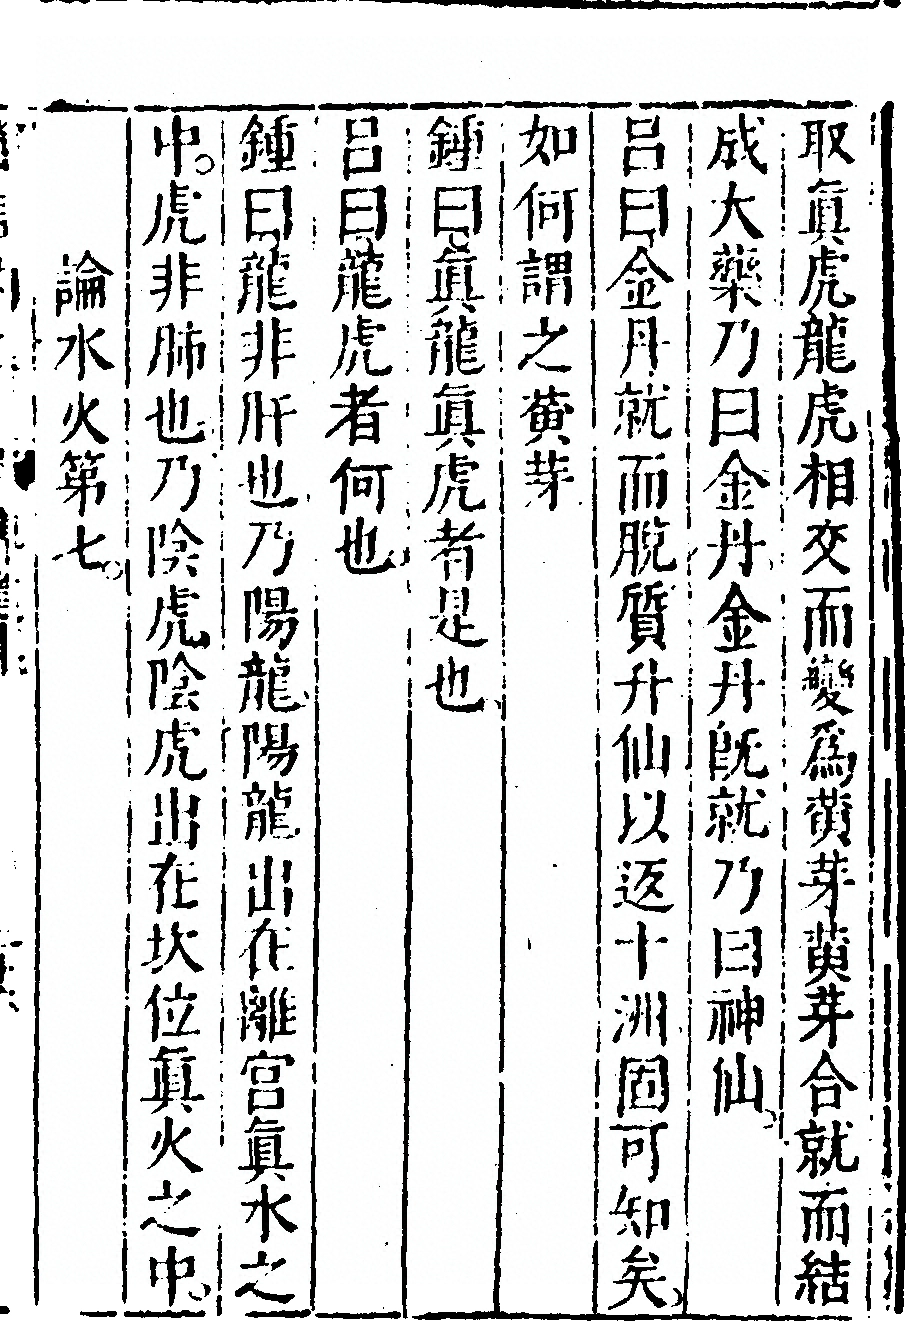 取眞虎龍虎相交而變爲黄芽黄芽合就而結
成大藥乃曰金丹金丹既就乃曰神仙
呂曰金丹就而脫質升仙以返十洲固可知矣
如何謂之黄芽
鍾曰眞龍眞虎者是也
呂曰龍虎者何也
鍾曰龍非肝也乃陽龍陽龍出在離宮眞水之
中虎非肺也乃陰虎陰虎出在坎位眞火之中
論水火第七